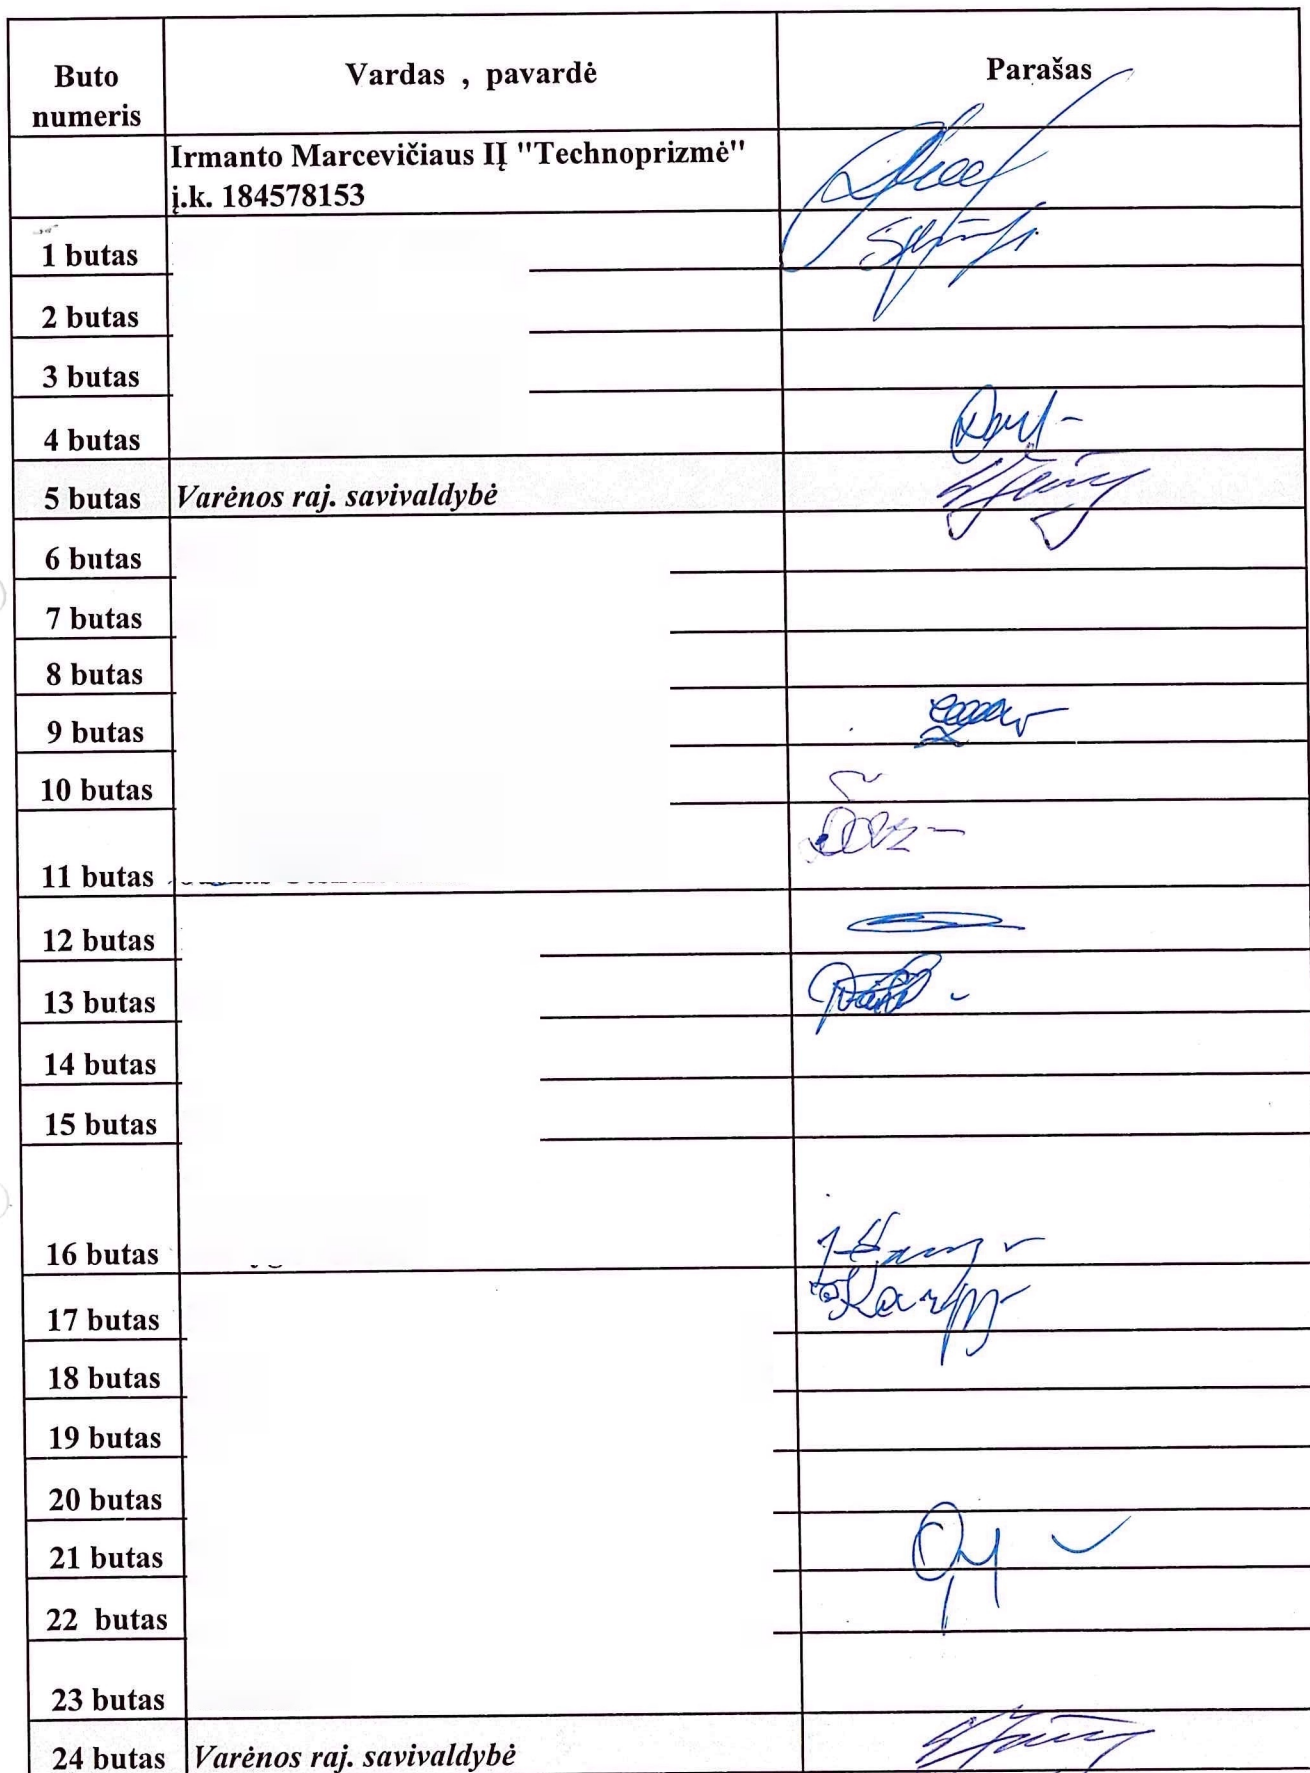 Buto numeris
Vardas , pavardė
Parašas
Irmanto Marcevičiaus IĮ "Technoprizmė"
į.k. 184578153
1 butas
2 butas
3 butas
4 butas
5 butas Varėnos raj. savivaldybė
6 butas
7 butas
8 butas
9 butas
10 butas
11 butas
12 butas
13 butas
14 butas
15 butas
16 butas
17 butas
18 butas
19 butas
20 butas
21 butas
22 butas
23 butas
24 butas Varėnos raj. savivaldybė